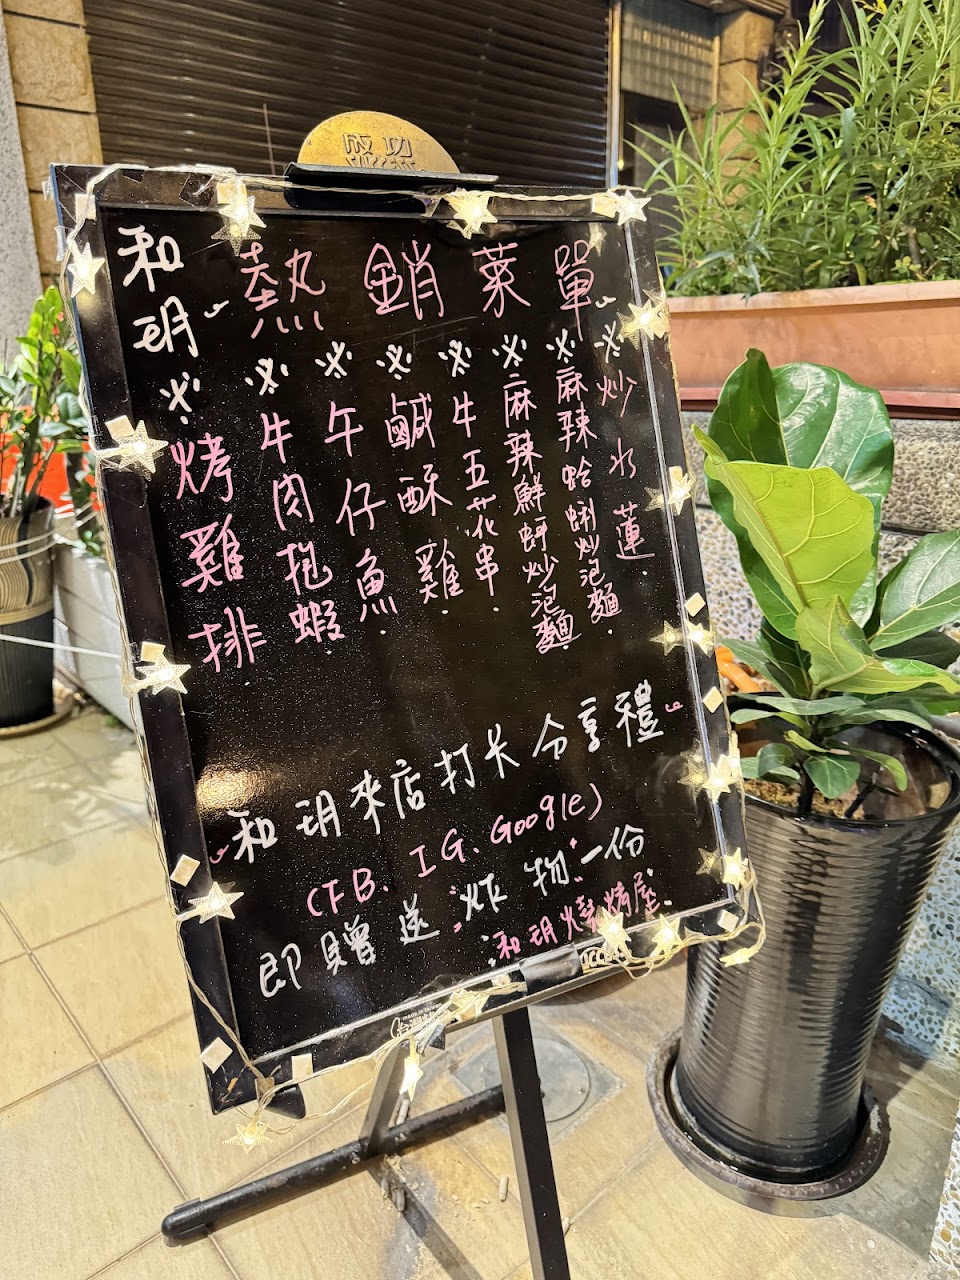 成功
SUCCESS
和玥
熱銷菜單
※烤雞排
※牛肉抱蝦
※午仔魚
※鹹酥雞
※牛五花串
※麻辣鮮蚵炒泡麵
※麻辣蛤蜊炒泡麵
※炒水蓮
和玥來店打卡分享禮
(FB、IG、Google)
即贈送"炸物"一份
和玥燒烤屋